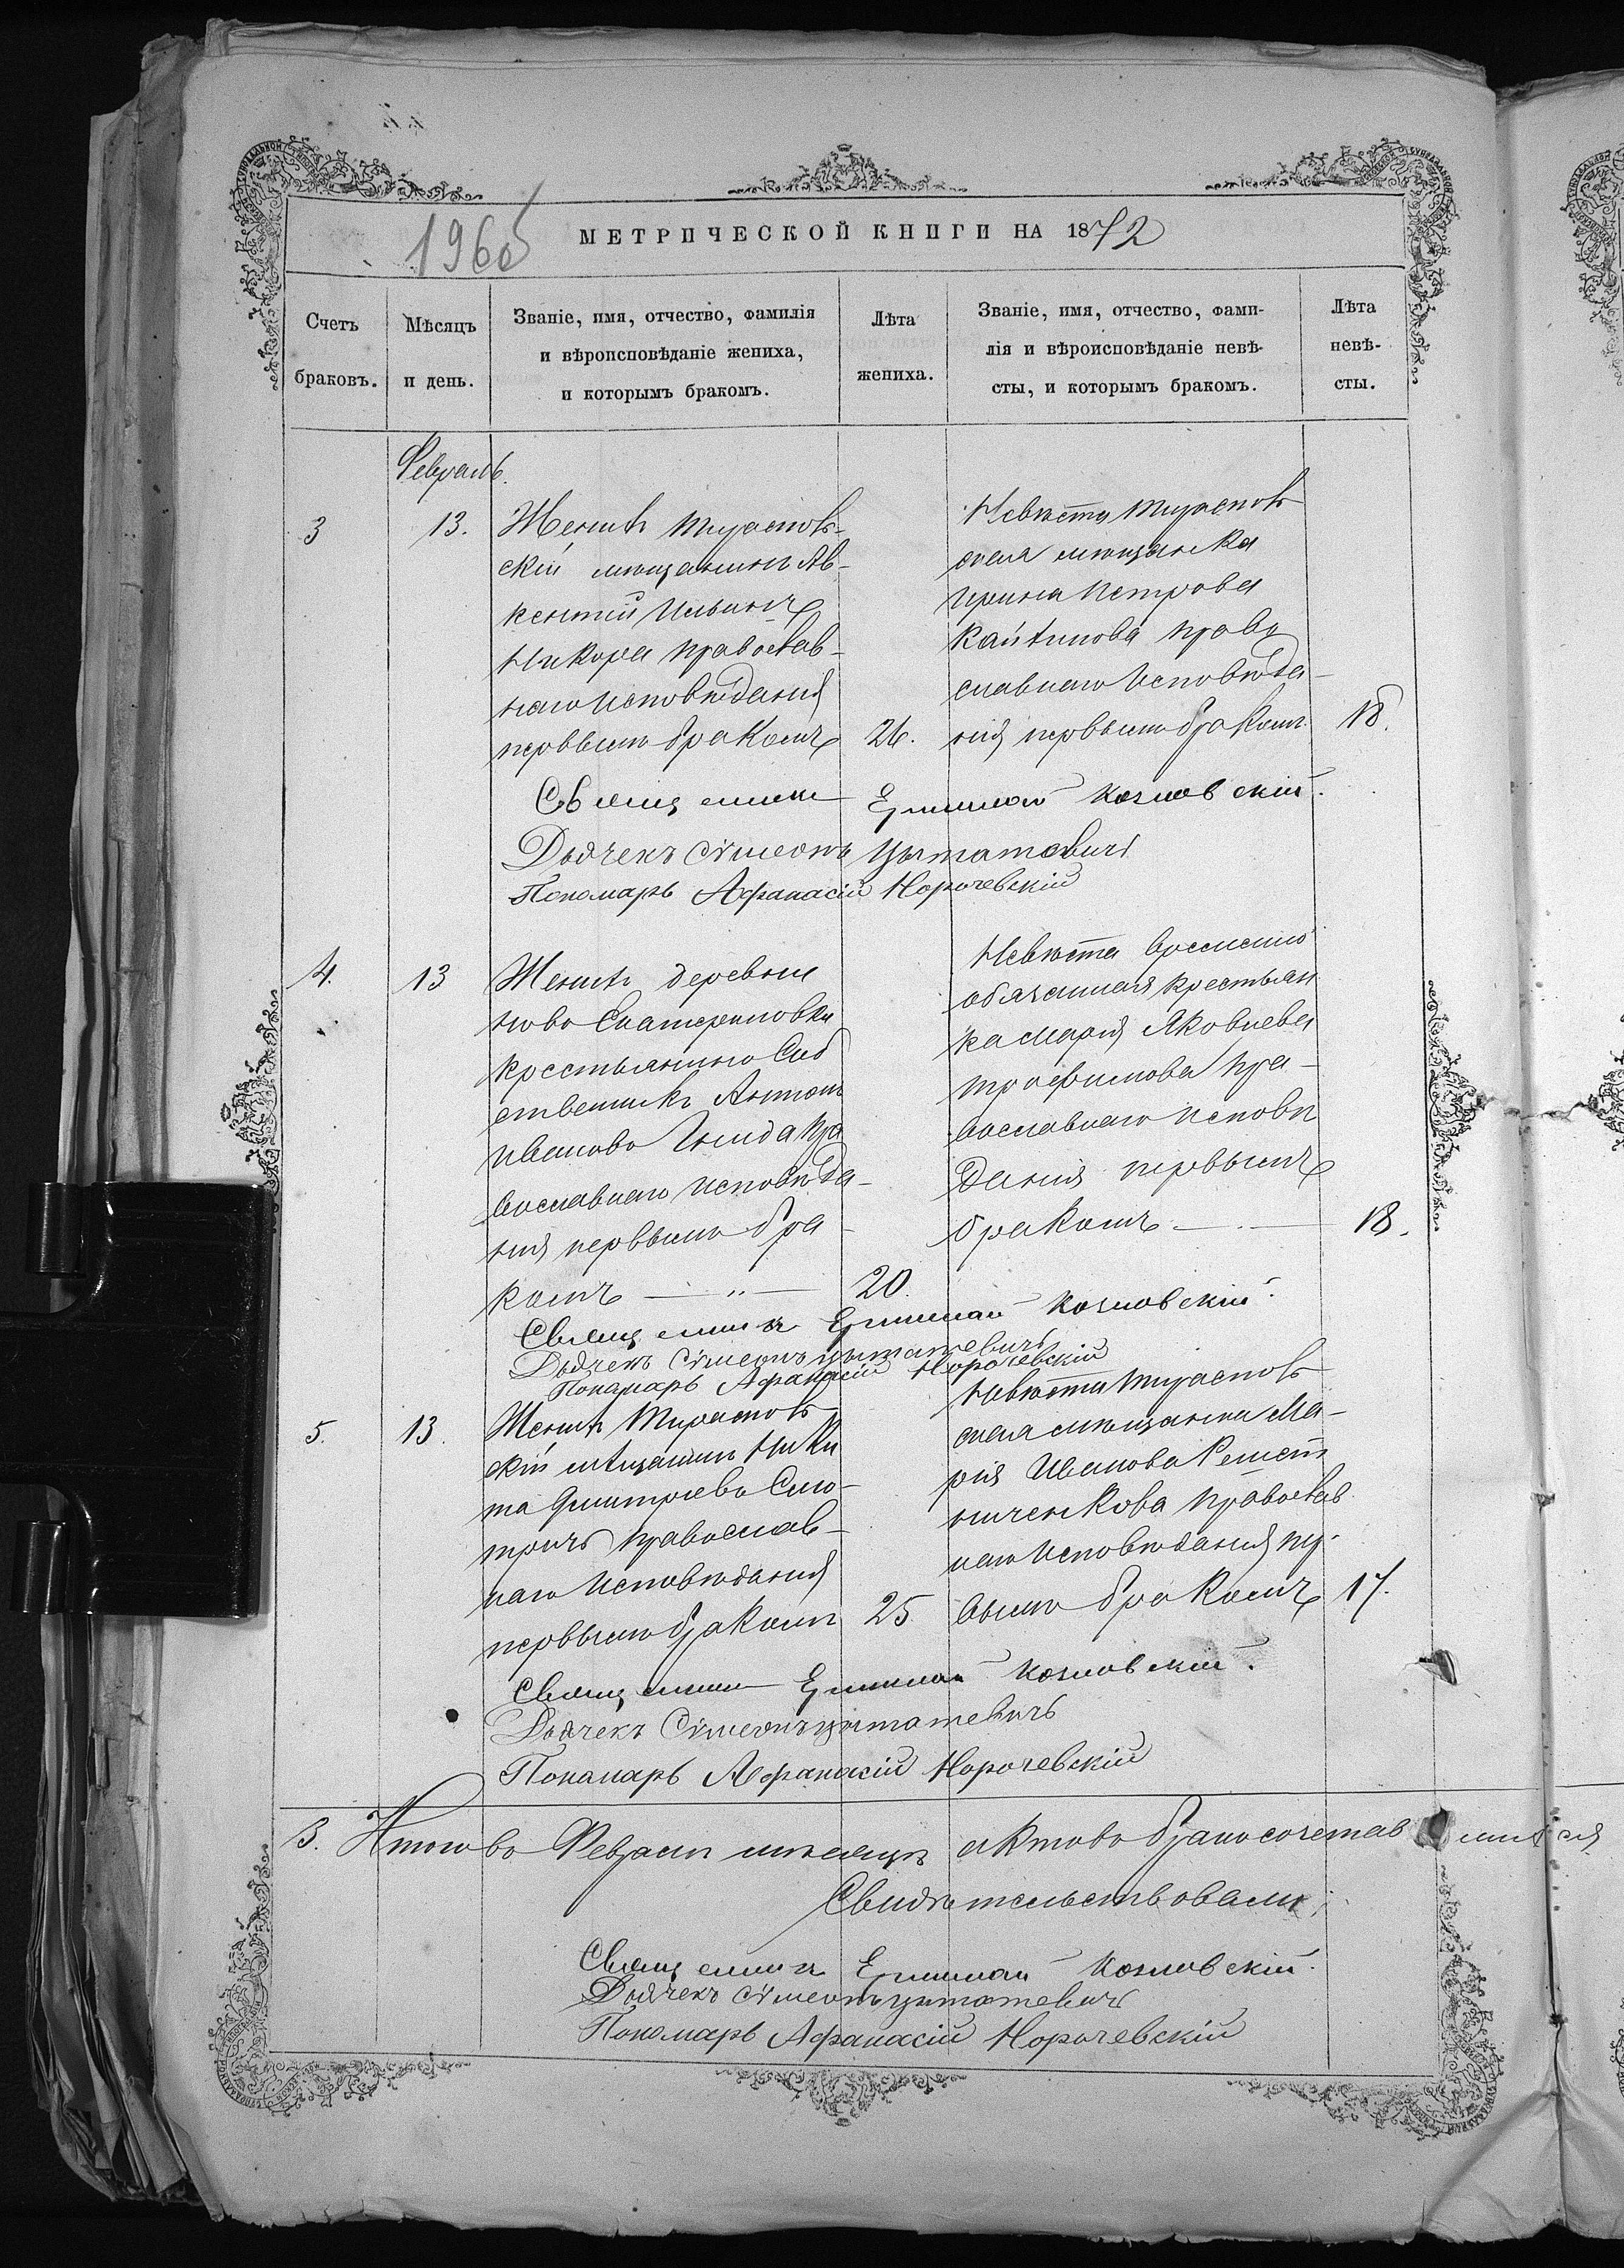 1960б
МЕТРИЧЕСКОЙ КНИГИ НА 1872
Счетъ браковъ.
Мѣсяцъ и день.
Званіе, имя, отчество, фамилія
и вѣроисповѣданіе жениха,
и которымъ бракомъ.
Лѣта
жениха.
Званіе, имя, отчество, фами-
лія и вѣроисповѣданіе невѣ-
сты, и которымъ бракомъ.
Лѣта
невѣ-
сты.
Февраль.
3
13.
Женихъ тираспол-
скій мѣщанинъ Ав-
кентій Ильинъ
Никора православ-
наго исповѣданія
первымъ бракомъ
26.
Невѣста тираспол
ская мѣщанка
Ирина Петрова
право
славнаго исповѣда-
нія первымъ бракомъ
18.
Священникъ Козловскій.
Дьячекъ Сѵмеонъ
Пономарь Афанасій Норочевскій
4.
13
Женихъ деревни
Ново Екатериновки
крестьянинъ Соб
ственникъ Антонъ
Ивановъ пра
вославнаго исповѣда-
нія первымъ бра-
комъ — „ —
20.
Невѣста временно
обязанная крестьян
ка Марія Яковлева
Трофимова пра-
вославнаго исповѣ
данія первымъ
бракомъ — . —
18.
Священникъ Козловскій.
Дьячекъ Сѵмеонъ
Пономарь Афанасій Норочевскій
5.
13.
Женихъ Тираспол-
скій мѣщанинъ Ники
та Дмитріевъ
православ-
наго исповѣданія
первымъ бракомъ
25
Невѣста тираспол
ская мѣщанка Ма-
рія Иванова Решет
ниченкова православ
наго исповѣданія пер-
вымъ бракомъ
17.
Священникъ Козловскій.
Дьячекъ Сѵмеонъ
Пономарь Афанасій Норочевскій
3. Итого въ Февралѣ мѣсяцѣ актовъ бракосочетав
Свидѣтельствовали;
Священникъ Козловскій.
Дьячекъ Сѵмеонъ
Пономарь Афанасій Норочевскій